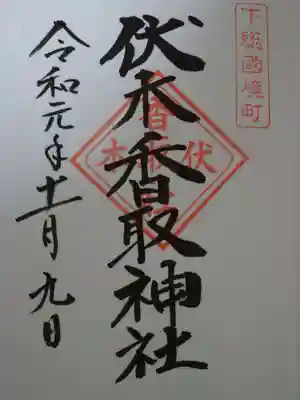 下総國境町
伏木香取神社
令和元年十一月九日